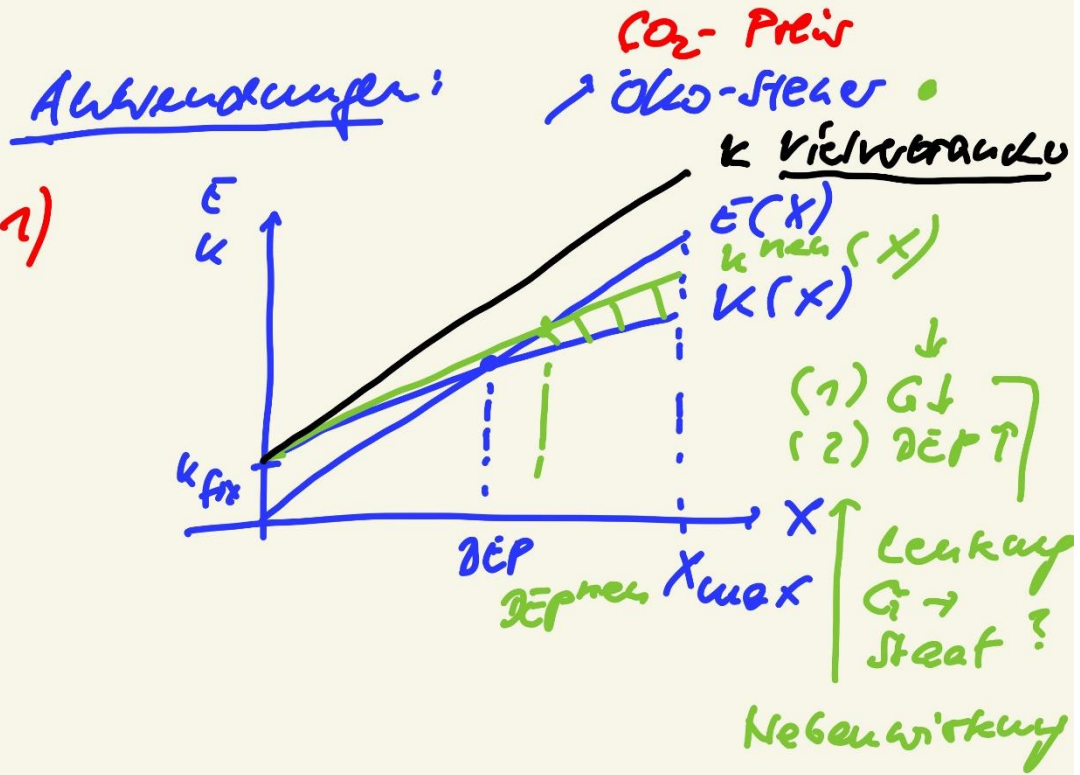 CO₂-Preis
Anwendungen:
↗ Öko-Steuer
K Vielverbraucher
1)
E
K
E(X)
K neu (X)
K(X)
↓
(1) G↓
(2) BEP↑
K fix
X
BEP
BEP neu
X max
Lenkung
G →
Staat ?
Nebenwirkung